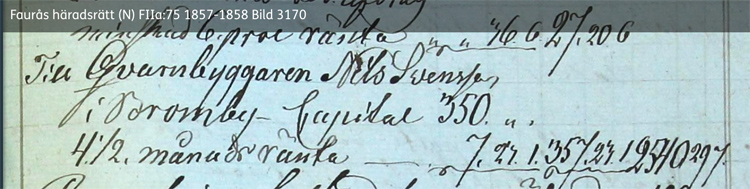 Faurås häradsrätt (N) FIIa:75 1857-1858 Bild 3170
6. proc ränta „ „ 16. 6 27. 20 6
Till Qvarnbyggaren Nils Svensson
i Boromby - Capital 350. „ .
4 1/2. månads ränta — 7. 21. 1. 357. 21. 1 2540 29 7.